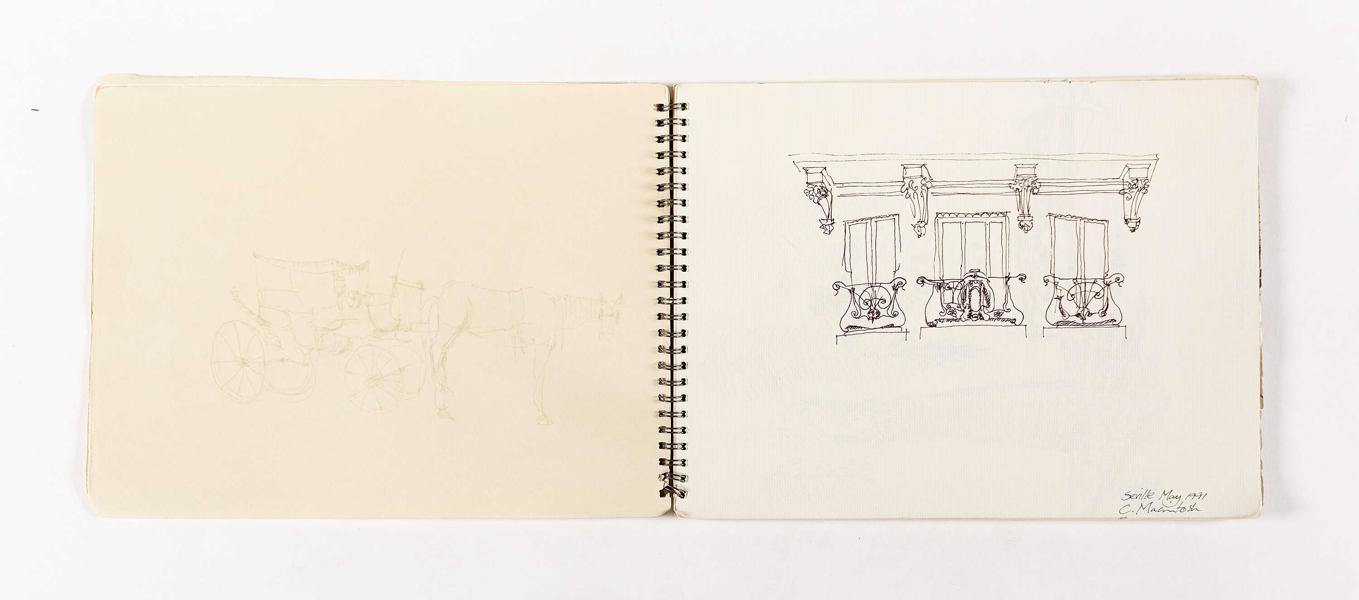 Seville May 1991
C. Macintosh